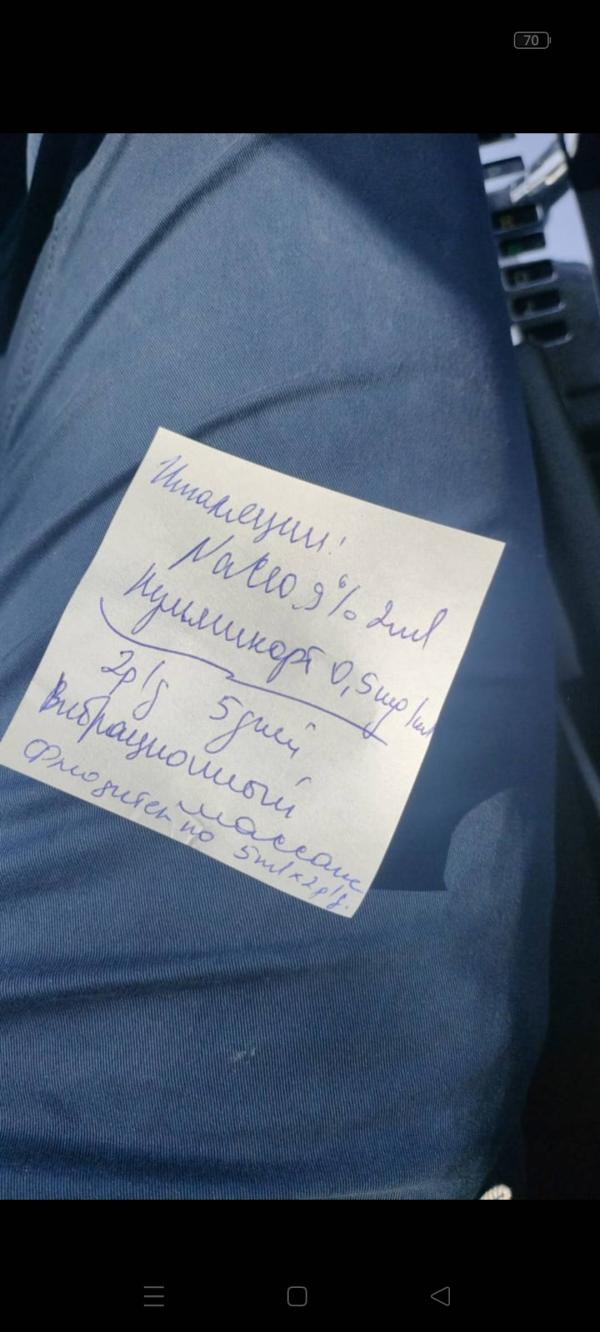 70
Ингаляции!
NaCl 0,9% 2ml
Пульмикорт 0,5mg/ml
2р/д 5дней
Вибрационный
массаж
Флюдитек по 5ml×2р/д.